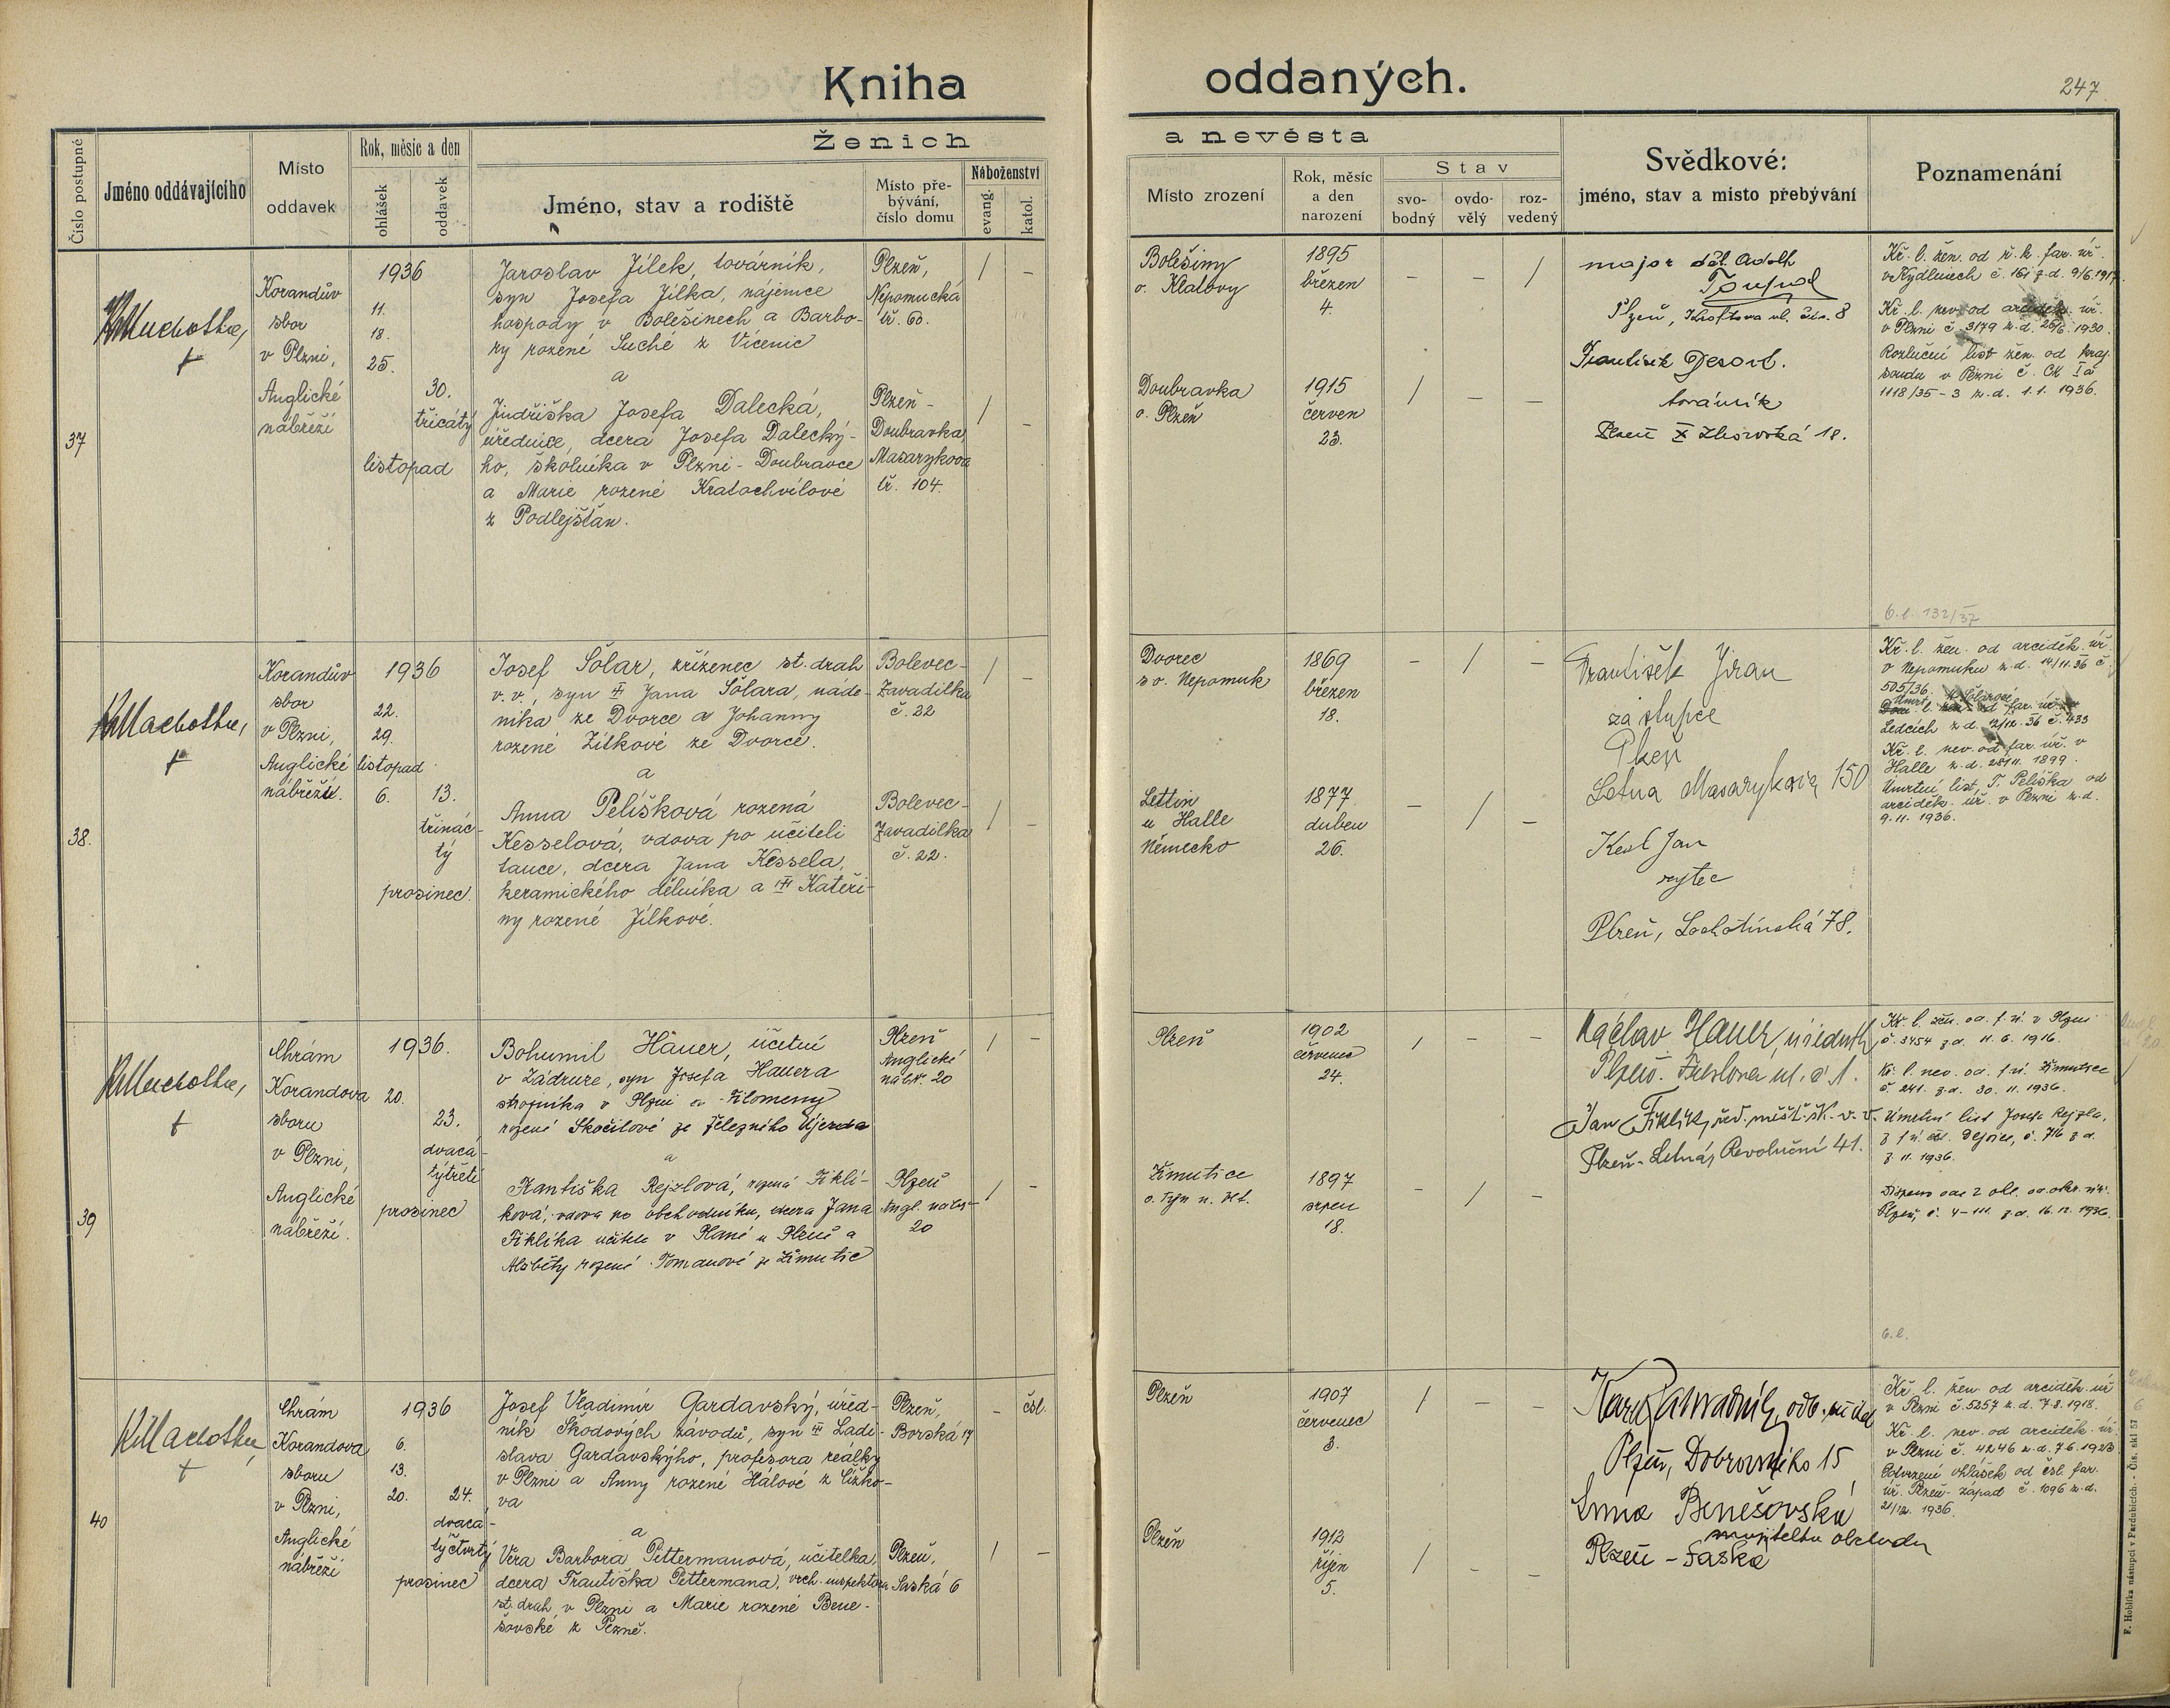 Kniha oddaných.
247
Ženich a nevěsta
Číslo postupné
Jméno oddávajícího
Místo
oddavek
Rok, měsíc a den
ohlášek
oddavek
Jméno, stav a rodiště
Místo pře-
bývání,
číslo domu
Náboženství
evang.
katol.
Místo zrození
Rok, měsíc
a den
narození
Stav
svo-
bodný
ovdo-
vělý
roz-
vedený
Svědkové:
jméno, stav a místo přebývání
Poznamenání
37
Korandův
sbor
v Plzni,
Anglické
nábřeží
1936
11.
18.
25.
30.
třicátý
listopad
Jaroslav Jílek, továrník,
syn Josefa Jílka, nájemce
hospody v Bolešinech a Barbo-
ry rozené Suché z Vícenic
a
Jindřiška Josefa Dalecká,
úřednice, dcera Josefa Dalecký-
ho, školníka v Plzni - Doubravce
a Marie rozené Kratochvílové
z Podlejšťan.
Plzeň,
Nepomucká
tř. 60.
Plzeň -
Doubravka,
Masarykova
tř. 104.
/ –
/ –
Bolešiny
o. Klatovy
1895
březen
4.
– – /
Doubravka
o. Plzeň
1915
červen
23.
/ – –
major Adolf
Plzeň, ul. 8
František
továrník
Plzeň X 18.
Kř. l. žen. od ř. k. far. úř.
v Kydlinech č. 161 z d. 9/6 1917.
Kř. l. nev. od arciděk. úř.
v Plzni č. 3179 z. d. 26/6 1930.
Rozlučný list žen. od kraj.
soudu v Plzni č. Ck Ia
1118/35 - 3 z. d. 1. 1. 1936.
6. l. 132/37
38.
Korandův
sbor
v Plzni,
Anglické
nábřeží.
1936
22.
29.
listopad
6.
13.
třinác-
tý
prosinec.
Josef Šolar, zřízenec st. drah
v. v., syn Jana Šolara, náde-
níka ze Dvorce a Johanny
rozené Žílkové ze Dvorce.
a
Anna Pelíšková rozená
Kesselová, vdova po učiteli
tance, dcera Jana Kessela,
keramického dělníka a Kateři-
ny rozené Jílkové.
Bolevec-
Zavadilka
č. 22
Bolevec-
Zavadilka
č. 22.
/ –
/ –
Dvorec
s o. Nepomuk
1869
březen
18.
– / –
Lettin
u Halle
Německo
1877
duben
26.
– / –
František Jiran
zástupce
Plzeň
Letná Masarykova 150
Kesl Jan
rytec
Plzeň, Lochotínská 78.
Kř. l. žen. od arciděk. úř.
v Nepomuku z. d. 14/11. 36 č.
505/36.
Ledcích z d. 2/12. 36 č. 433
Kř. l. nev. od far. úř. v
Halle z. d. 28/11. 1899.
Úmrtní list T. Pelíška od
arciděk. úř. v Plzni z. d.
9. 11. 1936.
39
Chrám
Korandova
sboru
v Plzni,
Anglické
nábřeží.
1936.
20.
23.
dvacá-
týtřetí
prosinec
Bohumil Hauer, účetní
v Zádruze, syn Josefa Hauera
strojníka v Plzni a Filomeny
rozené Skočilové ze Železného Újezda
a
Františka Rejzlová, rozená Fiklí-
ková, vdova po obchodníku, dcera Jana
Fiklíka učitele v Plané u Plzně a
Alžběty rozené Tomanové ze Žimutic
Plzeň
Anglické
nábř. 20
Plzeň
Angl. nábř-
20
/ –
/ –
Plzeň
1902
červenec
24.
/ – –
Žimutice
o. Týn n. Vlt.
1897
srpen
18.
– / –
Václav Hauer, úředník,
Plzeň. ul. č. 1.
Jan Fiklík, řed. měšť. šk. v. v.
Plzeň - Letná, Revoluční 41.
Kř. l. žen. od. f. ú. v Plzni
č. 3454 z d. 11. 6. 1916.
Kř. l. nev. od. f. ú. Žimutice
č. 241. z d. 30. 11. 1936.
Úmrtní list Josefa Rejzla,
z f. ú. čsl. Dejvice, č. 716 z d.
z. 11. 1936.
Dispens ode 2 ohl. od okr. úř.
Plzeň, č. 4-111. z d. 16. 12. 1936.
6. l.
40
Chrám
Korandova
sboru
v Plzni,
Anglické
nábřeží
1936
6.
13.
20.
24.
dvacá-
týčtvrtý
prosinec
Josef Vladimír Gardavský, úřed-
ník Škodových závodů, syn Ladi-
slava Gardavského, profesora reálky
v Plzni a Anny rozené Hálové z Žižko-
va
a
Věra Barbora Pittermanová, učitelka,
dcera Františka Pittermana, vrch. inspektora
st. drah v Plzni a Marie rozené Bene-
šovské z Plzně.
Plzeň,
Borská 17
Plzeň,
Saská 6
– čsl.
/ –
Plzeň
1907
červenec
3.
/ – –
Plzeň
1912
říjen
5.
/ – –
Karel odb. učitel
Plzeň, Dobrovského 15
Benešovská
majitelka obchodu
Plzeň - Saská
Kř. l. žen. od arciděk. úř.
v Plzni č. 5257 z. d. 7. 8. 1918.
Kř. l. nev. od arciděk. úř.
v Plzni č. 4246 z. d. 7. 6. 1923
Potvrzení ohlášek od čsl. far.
úř. Plzeň - západ č. 1096 z. d.
21/12. 1936.
F. Hoblíka nástupci v Pardubicích. - Čís. skl 57